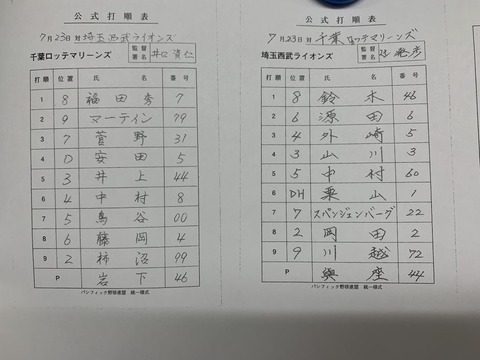 公式打順表
7月23日 対 埼玉西武ライオンズ
千葉ロッテマリーンズ 監督署名 井口資仁
打順 位置 氏名 番号
1 8 福田秀 7
2 9 マーティン 79
3 7 菅野 31
4 D 安田 5
5 3 井上 44
6 4 中村 8
7 5 鳥谷 00
8 6 藤岡 4
9 2 柿沼 99
P 岩下 46
パシフィック野球連盟 統一様式
公式打順表
7月23日 対 千葉ロッテマリーンズ
埼玉西武ライオンズ 監督署名
打順 位置 氏名 番号
1 8 鈴木 46
2 6 源田 6
3 4 外崎 5
4 3 山川 3
5 5 中村 60
6 DH 栗山 1
7 7 スパンジェンバーグ 22
8 2 岡田 2
9 9 川越 72
P 與座 44
パシフィック野球連盟 統一様式